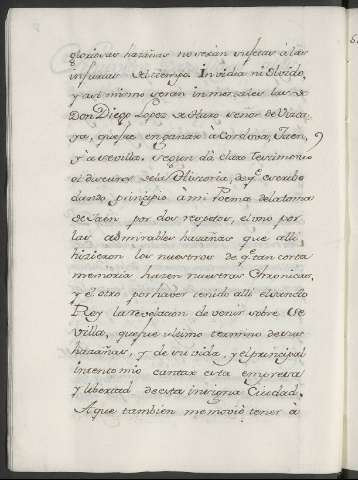 gloriosas hazañas no serán sujetas a las
injurias del tiempo, Invidia ni Olvido,
y asi mismo seran inmortales las de
Don Diego Lopez de Haro señor de Vizca-
ya, que fue en ganar a Cordova, Jaen,
y à Sevilla, segun dà claro testimonio
el discurso dela Historia, de q.e escribo
dando principio à mi Poema dela toma
de Jaén por dos respetos, el uno por
las admirables hazañas que alli
hizieron los nuestros de q.e tan corta
memoria hazen nuestras Chronicas,
y el otro por haver tenido alli el Sancto
Rey la revelacion de venir sobre Se
villa, que fue ultimo termino de sus
hazañas, y de su vida, y el principal
intento mio cantar esta empresa
y libertad de esta insigne Ciudad.
A que tambien me movió tener à